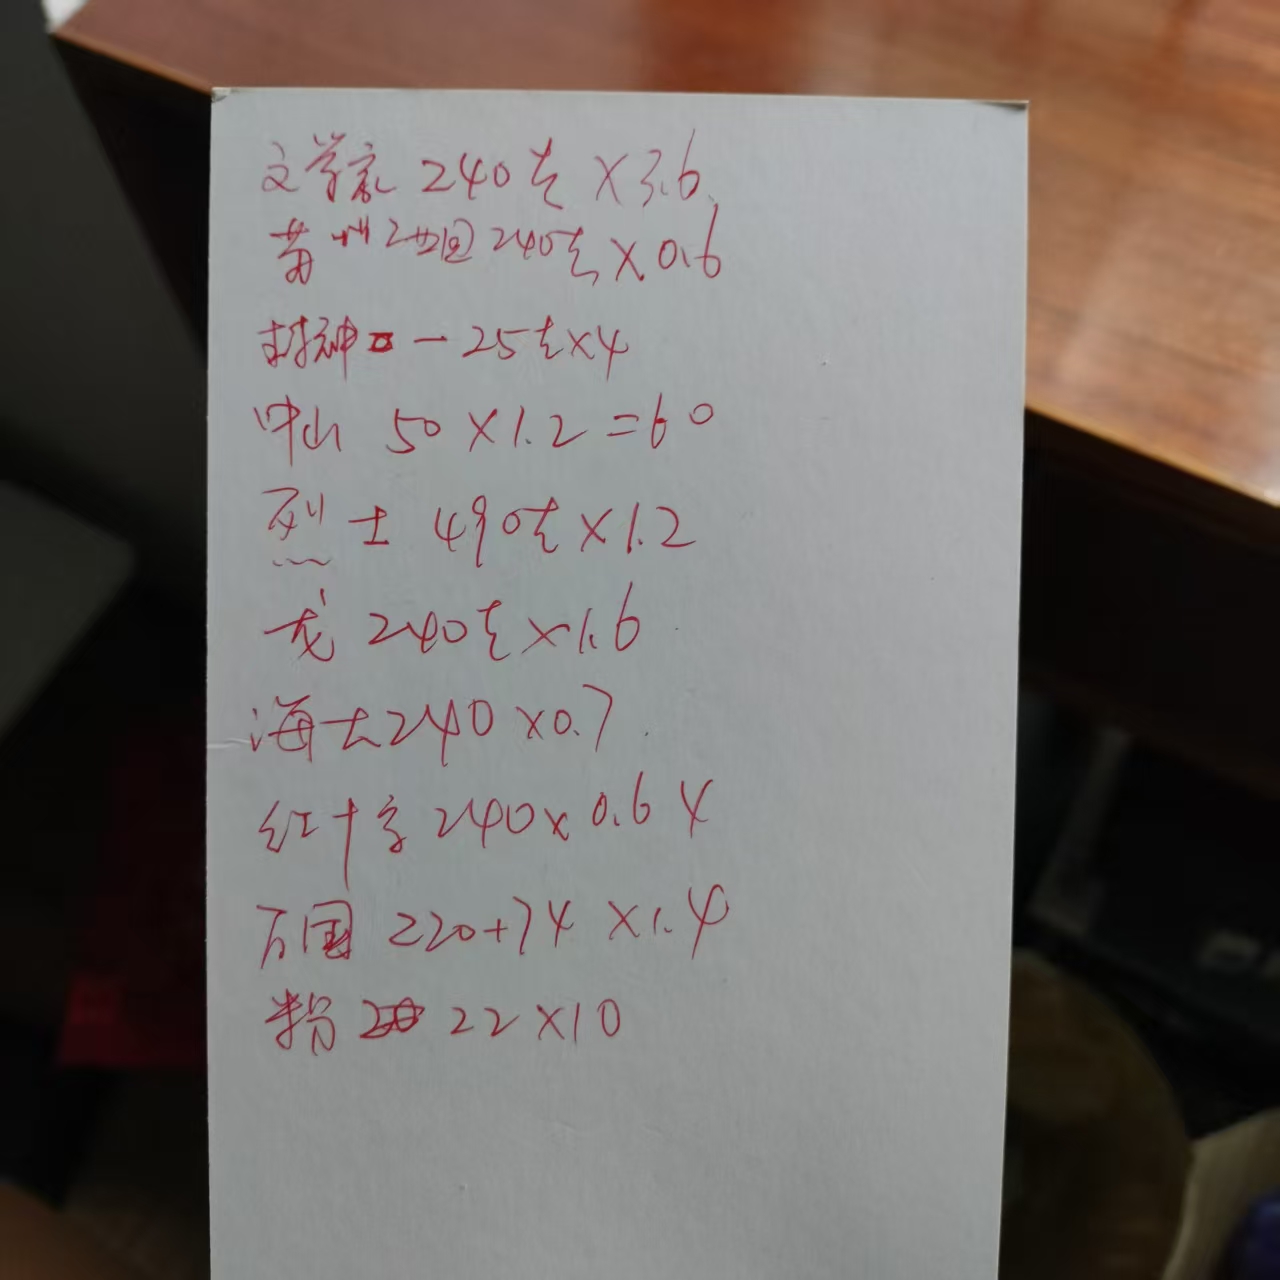 文学家 240克 ×3.6
黄州2组回 240克 ×0.6
封神 一 25克×4
中山 50×1.2=60
烈士 490克×1.2
龙 240克×1.6
海士240×0.7
红十字 240×0.6
万国 220+74 ×1.4
粉 22×10